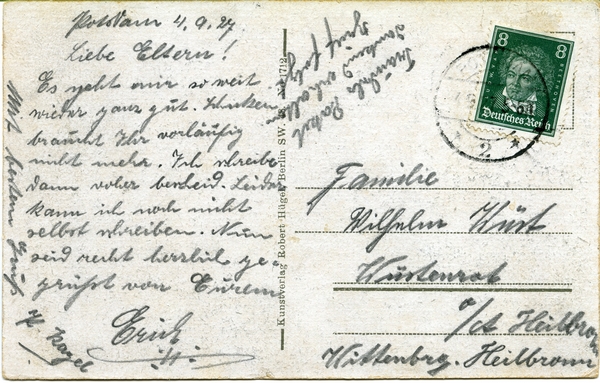 Potsdam 4.9.27
Liebe Eltern!
Es geht mir so weit
wieder ganz gut. Schicken
braucht Ihr vorläufig
nicht mehr. Ich schreibe
dann vorher bescheid. Leider
kann ich noch nicht
selbst schreiben. Nun
seid recht herzlich ge-
grüßt von Eurem
Erich
Mit bestem Gruß
Kunstverlag Robert Hüger Berlin SW. 1712
dankend erhalten
8 8
Deutsches Reich
2
Familie
Wilhelm Wüst
Wüstenrot
o/a Heilbronn
Wittenberg. Heilbronn